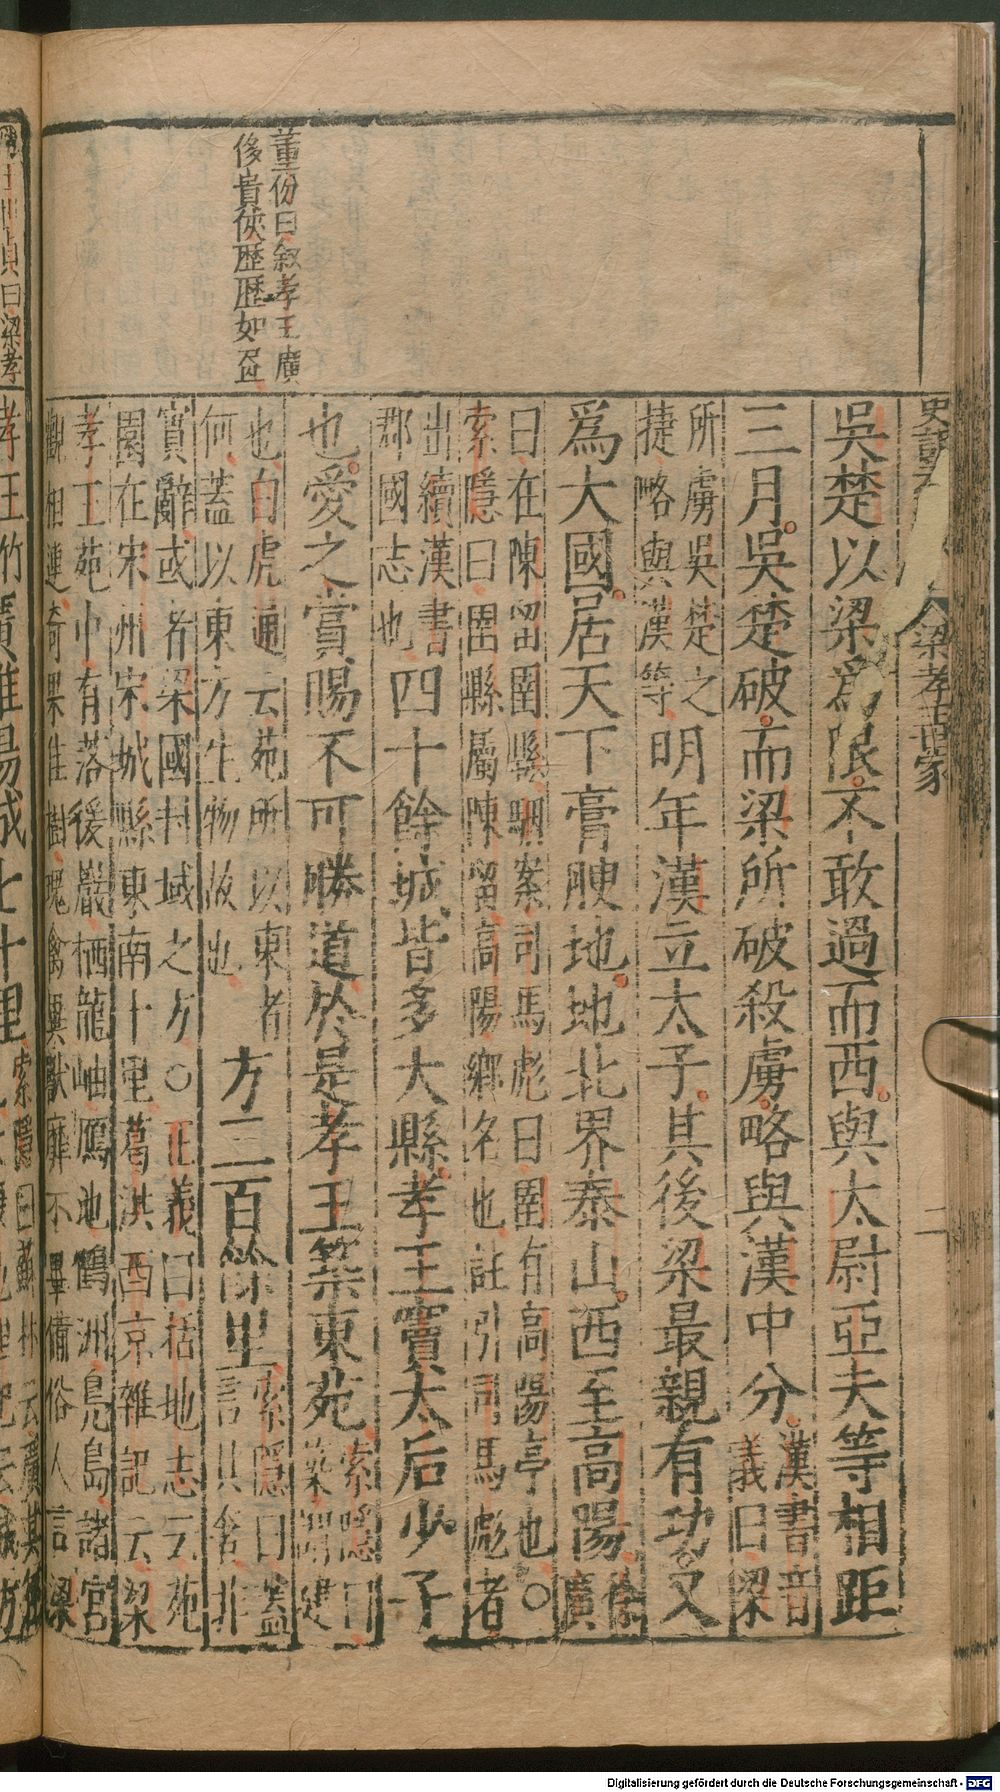 史記
梁孝王世家
二
董份曰叙孝王廣
侈貴俠歷歷如
吳楚以梁爲限不敢過而西與太尉亞夫等相距
三月吳楚破而梁所破殺虜略與漢中分
漢書音
義曰梁
所虜吳楚之
捷略與漢等
明年漢立太子其後梁最親有功又
爲大國居天下膏腴地地北界泰山西至高陽
徐
廣
曰在陳留圉縣駰案司馬彪曰圉有高陽亭也○
索隱曰圉縣屬陳留高陽鄉名也註引司馬彪者
出續漢書
郡國志也
四十餘城皆多大縣孝王竇太后少子
也愛之賞賜不可勝道於是孝王築東苑
索隱曰
築謂建
也白虎通云苑所以東者
何蓋以東方生物故也
方三百餘里
索隱曰蓋
言其奢非
實辭或者梁國封域之方○正義曰括地志云苑
園在宋州宋城縣東南十里葛洪西京雜記云梁
孝王苑中有落猨巖栖龍岫鴈池鶴洲鳧島諸宮
觀相連奇果佳樹瑰禽異獸靡不畢備俗人言梁
貞曰梁孝
孝王竹
廣睢陽城七十里
索隱曰蘇林云廣其徑
Digitalisierung gefördert durch die Deutsche Forschungsgemeinschaft - DFG